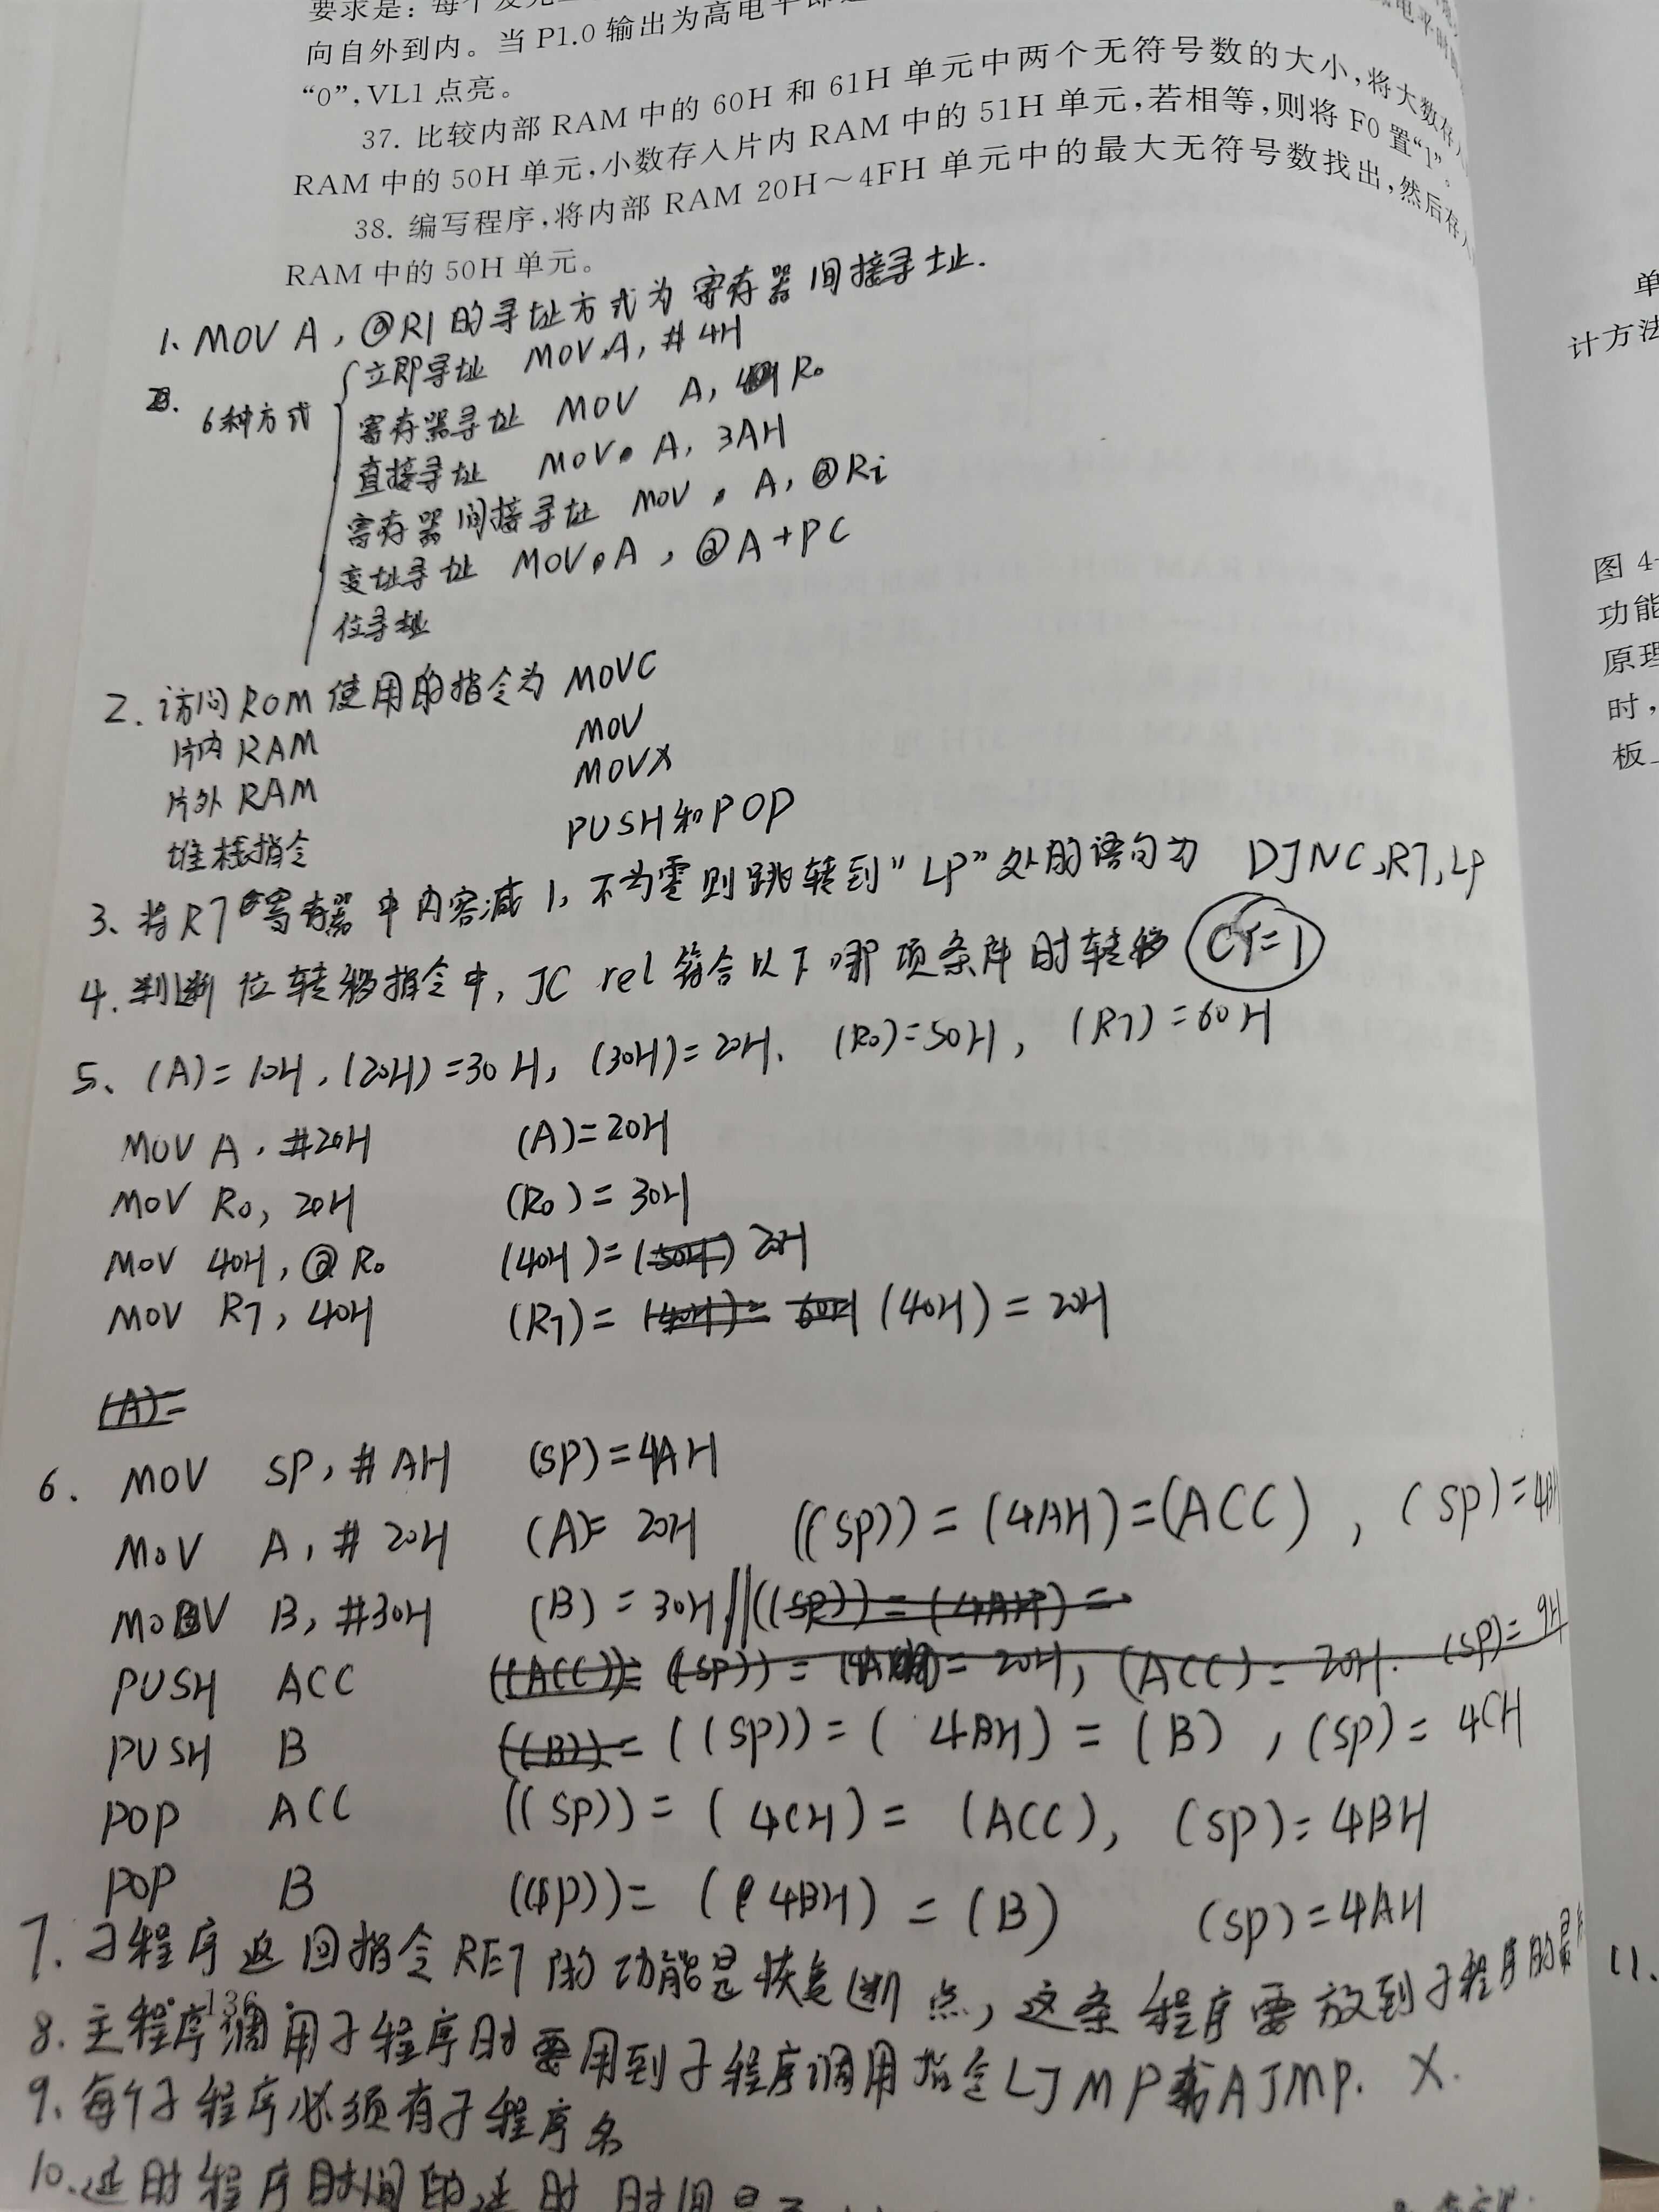 要求是：每个发光二
向自外到内。当 P1.0 输出为高电平即
“0”，VL1 点亮。
37. 比较内部 RAM 中的 60H 和 61H 单元中两个无符号数的大小，将大数存入
RAM 中的 50H 单元，小数存入片内 RAM 中的 51H 单元，若相等，则将 F0 置“1”。
38. 编写程序，将内部 RAM 20H～4FH 单元中的最大无符号数找出，然后存入
RAM 中的 50H 单元。
1、MOV A，@R1 的寻址方式为寄存器间接寻址.
6种方式
立即寻址 MOV A, #4H
寄存器寻址 MOV A, R0
直接寻址 MOV A, 3AH
寄存器间接寻址 MOV A, @Ri
变址寻址 MOV A, @A+PC
位寻址
2. 访问ROM使用的指令为 MOVC
片内RAM MOV
片外RAM MOVX
堆栈指令 PUSH和POP
3、将R7寄存器中内容减1，不为零则跳转到“LP”处的语句为 DJNC,R7,LP
4. 判断位转移指令中，JC rel 符合以下哪项条件时转移 CY=1
5、(A)=10H, (20H)=30H, (30H)=20H、(R0)=50H, (R7)=60H
MOV A, #20H (A)=20H
MOV R0, 20H (R0)=30H
MOV 40H, @R0 (40H)=(50H) 20H
MOV R7, 40H (R7)=(40H)=60H (40H)=20H
(A)=
6. MOV SP, #AH (SP)=4AH
MOV A, #20H (A)=20H ((SP))=(4AH)=(ACC), (SP)=4BH
MOV B, #30H (B)=30H ((SP))=(4AH)=
PUSH ACC ((ACC))=((SP)) = 20H, (ACC)=20H. (SP)=9H
PUSH B ((B))=((SP))=(4BH)=(B), (SP)=4CH
POP ACC ((SP))=(4CH)=(ACC), (SP)=4BH
POP B ((SP))=(4BH)=(B) (SP)=4AH
7. 子程序返回指令RET的功能是恢复断点，这条程序要放到子程序的最
136
8. 主程序调用子程序时要用到子程序调用指令LJMP或AJMP. X.
9. 每个子程序必须有子程序名
10. 延时程序时间的延时时间是
11.
单
计方法
图 4-
功能
原理
时，
板